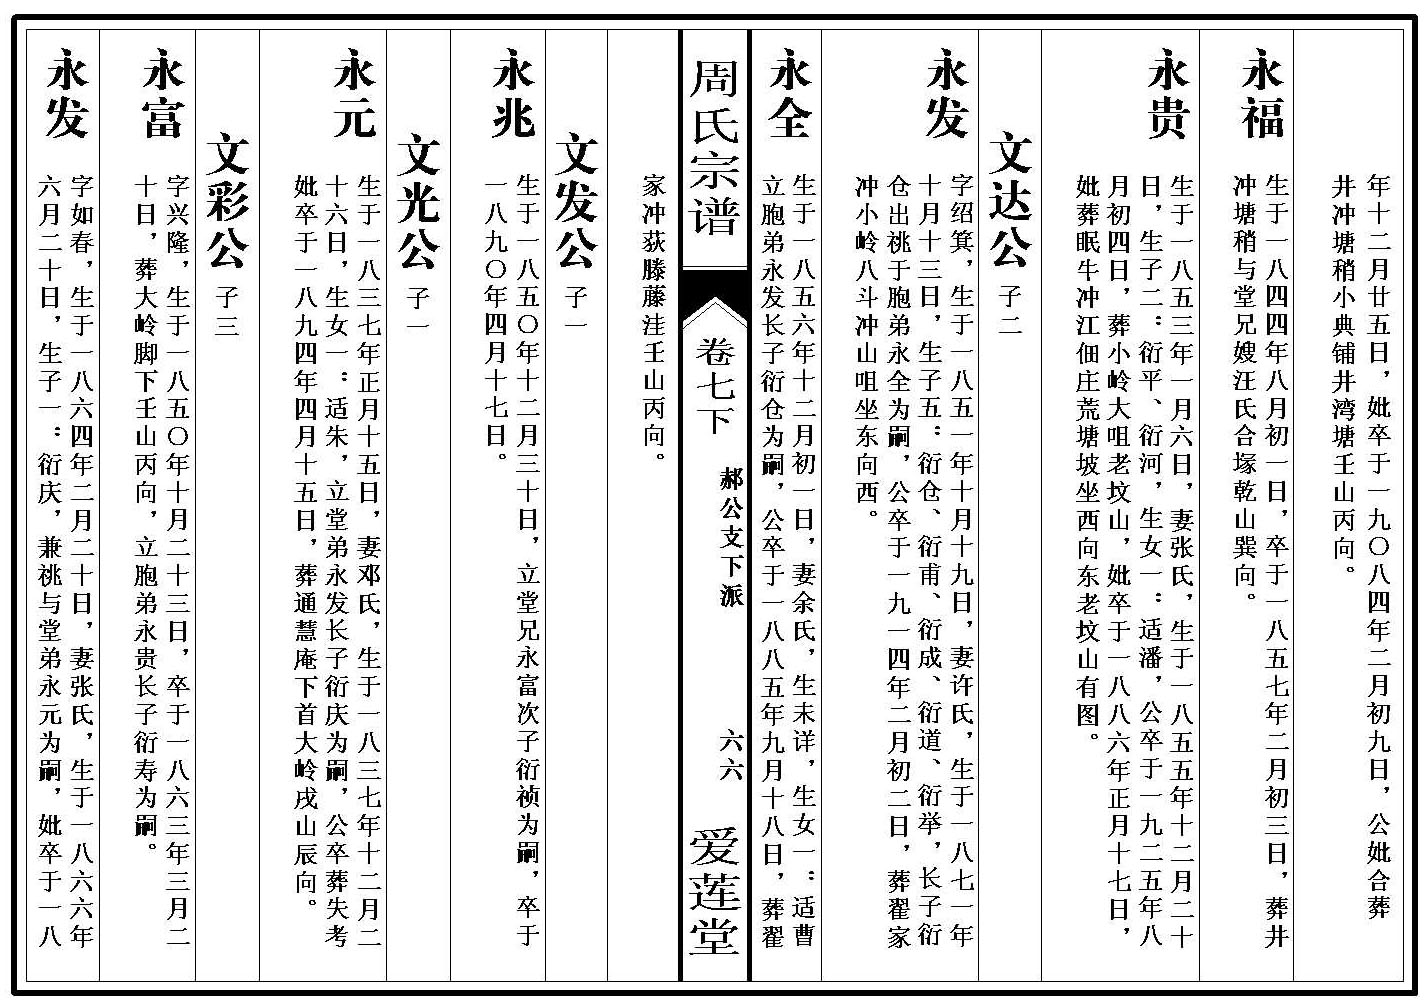 年十二月廿五日，妣卒于一九〇八四年二月初九日，公妣合葬
井冲塘稍小典铺井湾塘壬山丙向。
永福
生于一八四四年八月初一日，卒于一八五七年二月初三日，葬井
冲塘稍与堂兄嫂汪氏合塚乾山巽向。
永贵
生于一八五三年一月六日，妻张氏，生于一八五五年十二月二十
日，生子二：衍平、衍河，生女一：适潘，公卒于一九二五年八
月初四日，葬小岭大咀老坟山，妣卒于一八八六年正月十七日，
妣葬眠牛冲江佃庄荒塘坡坐西向东老坟山有图。
文达公 子二
永发
字绍箕，生于一八五一年十月十九日，妻许氏，生于一八七一年
十月十三日，生子五：衍仓、衍甫、衍成、衍道、衍举，长子衍
仓出祧于胞弟永全为嗣，公卒于一九一四年二月初二日，葬翟家
冲小岭八斗冲山咀坐东向西。
永全
生于一八五六年十二月初一日，妻余氏，生未详，生女一：适曹
立胞弟永发长子衍仓为嗣，公卒于一八八五年九月十八日，葬翟
周氏宗谱
卷七下
郝公支下派
六六
爱莲堂
家冲荻滕藤洼壬山丙向。
文发公 子一
永兆
生于一八五〇年十二月三十日，立堂兄永富次子衍祯为嗣，卒于
一八九〇年四月十七日。
文光公 子一
永元
生于一八三七年正月十五日，妻邓氏，生于一八三七年十二月二
十六日，生女一：适朱，立堂弟永发长子衍庆为嗣，公卒葬失考
妣卒于一八九四年四月十五日，葬通慧庵下首大岭戌山辰向。
文彩公 子三
永富
字兴隆，生于一八五〇年十月二十三日，卒于一八六三年三月二
十日，葬大岭脚下壬山丙向，立胞弟永贵长子衍寿为嗣。
永发
字如春，生于一八六四年二月二十日，妻张氏，生于一八六六年
六月二十日，生子一：衍庆，兼祧与堂弟永元为嗣，妣卒于一八